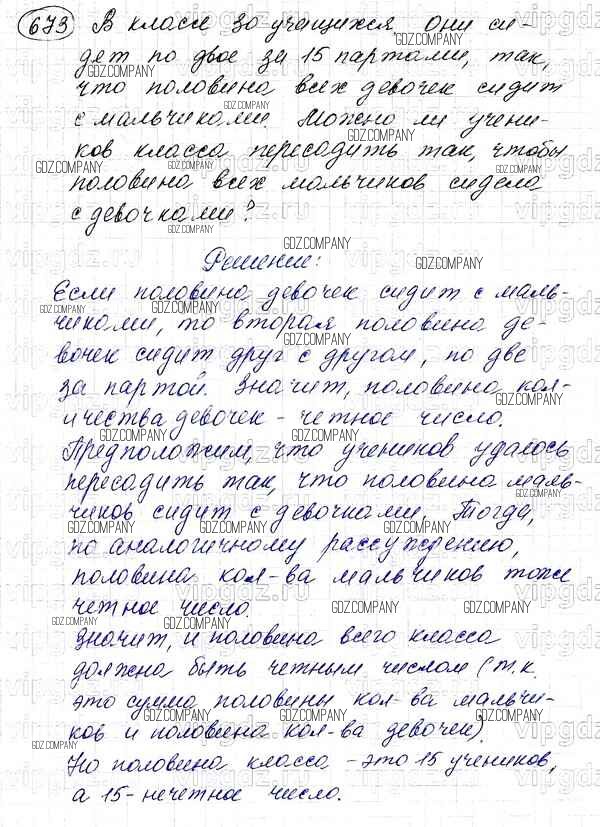 673 В классе 30 учащихся. Они си-
дят по двое за 15 партами, так,
что половина всех девочек сидит
с мальчиками. Можно ли учени-
ков класса пересадить так, чтобы
половина всех мальчиков сидела
с девочками?
Решение:
Если половина девочек сидит с маль-
чиками, то вторая половина де-
вочек сидит друг с другом, по две
за партой. Значит, половина кол-
ичества девочек - четное число.
Предположим, что учеников удалось
пересадить так, что половина маль-
чиков сидит с девочками. Тогда,
по аналогичному рассуждению,
половина кол-ва мальчиков тоже
четное число.
Значит, и половина всего класса
должна быть четным числом (т.к.
это сумма половины кол-ва мальчи-
ков и половина кол-ва девочек).
Но половина класса - это 15 учеников,
а 15 - нечетное число.